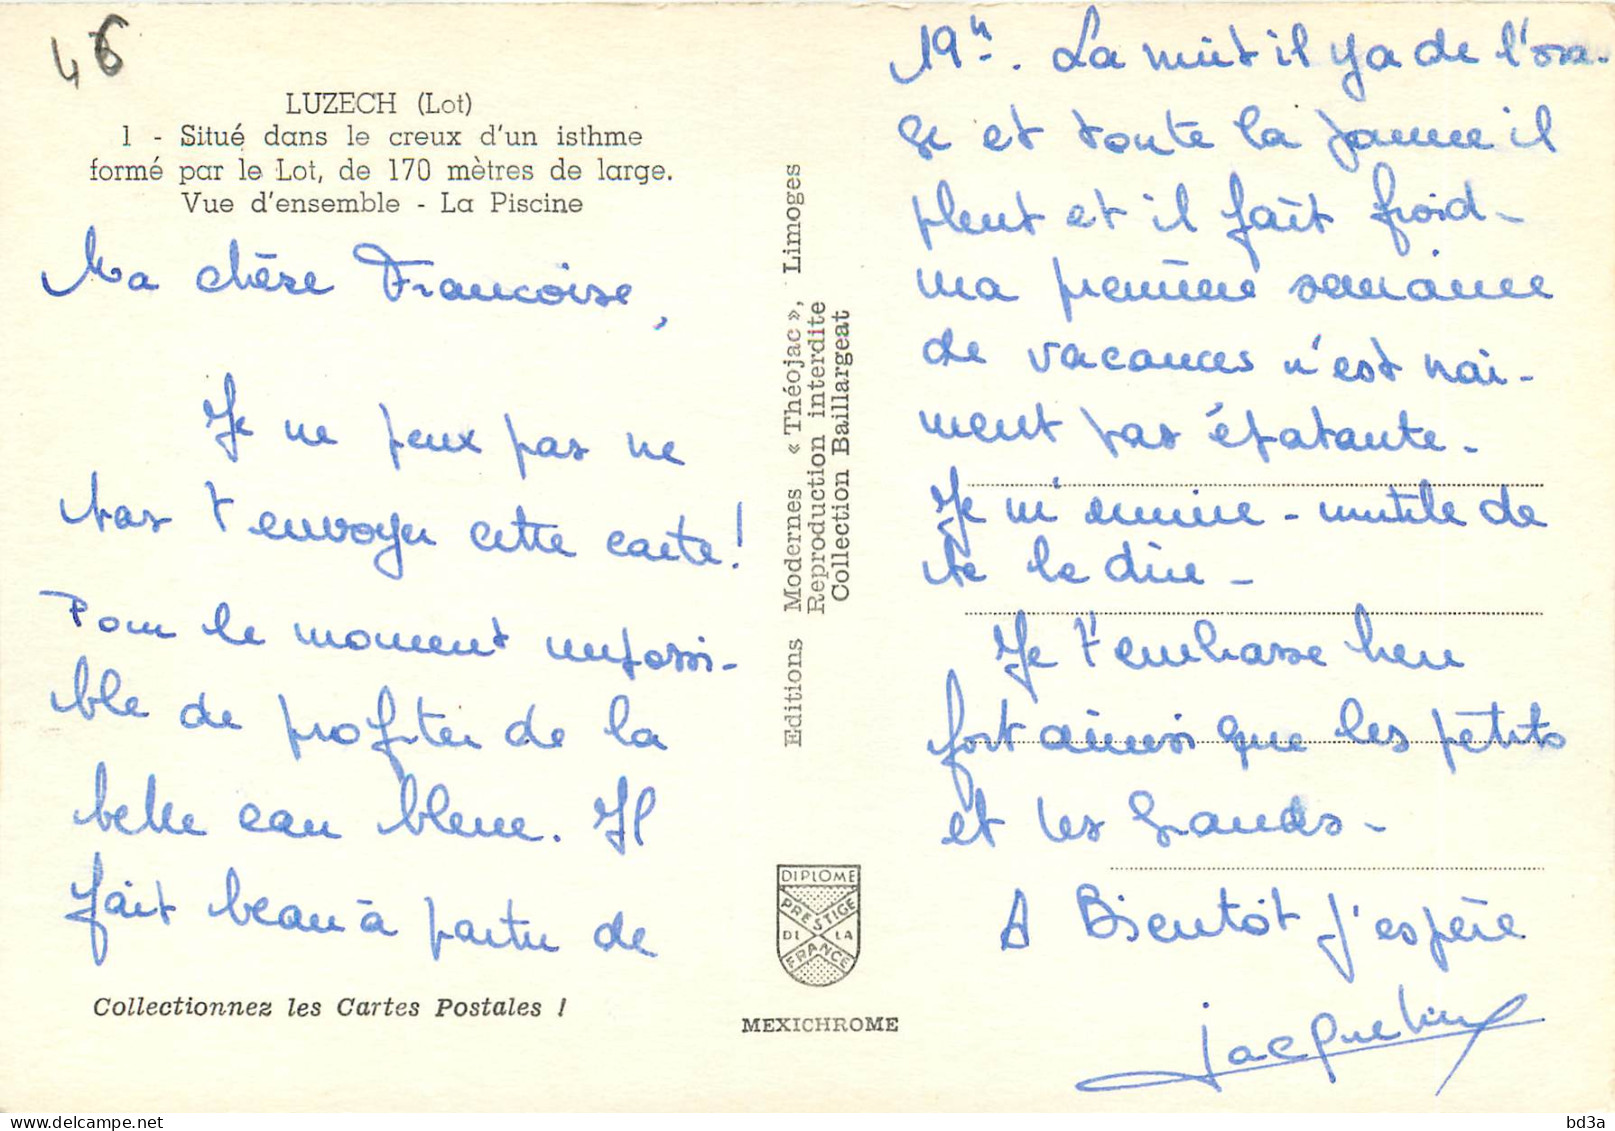 46
LUZECH (Lot)
1 - Situé dans le creux d'un isthme
formé par le Lot, de 170 mètres de large.
Vue d'ensemble - La Piscine
Ma chère Francoise,
Je ne peux pas ne
pas t'envoyer cette carte !
Pour le moment impossi-
ble de profiter de la
belle eau bleue. Il
fait beau à partir de
Collectionnez les Cartes Postales !
Editions Modernes « Théojac », Limoges
Reproduction interdite
Collection Baillargeat
DIPLOME
PRESTIGE
DE LA
FRANCE
MEXICHROME
19h. La nuit il y a de l'ora-
ge et toute la journée il
pleut et il fait froid -
ma première semaine
de vacances n'est vrai-
ment pas épatante.
Je m'ennuie - inutile de
te le dire -
Je t'embrasse bien
fort ainsi que les petits
et les grands -
A Bientôt j'espère
Jacqueline
bd3a